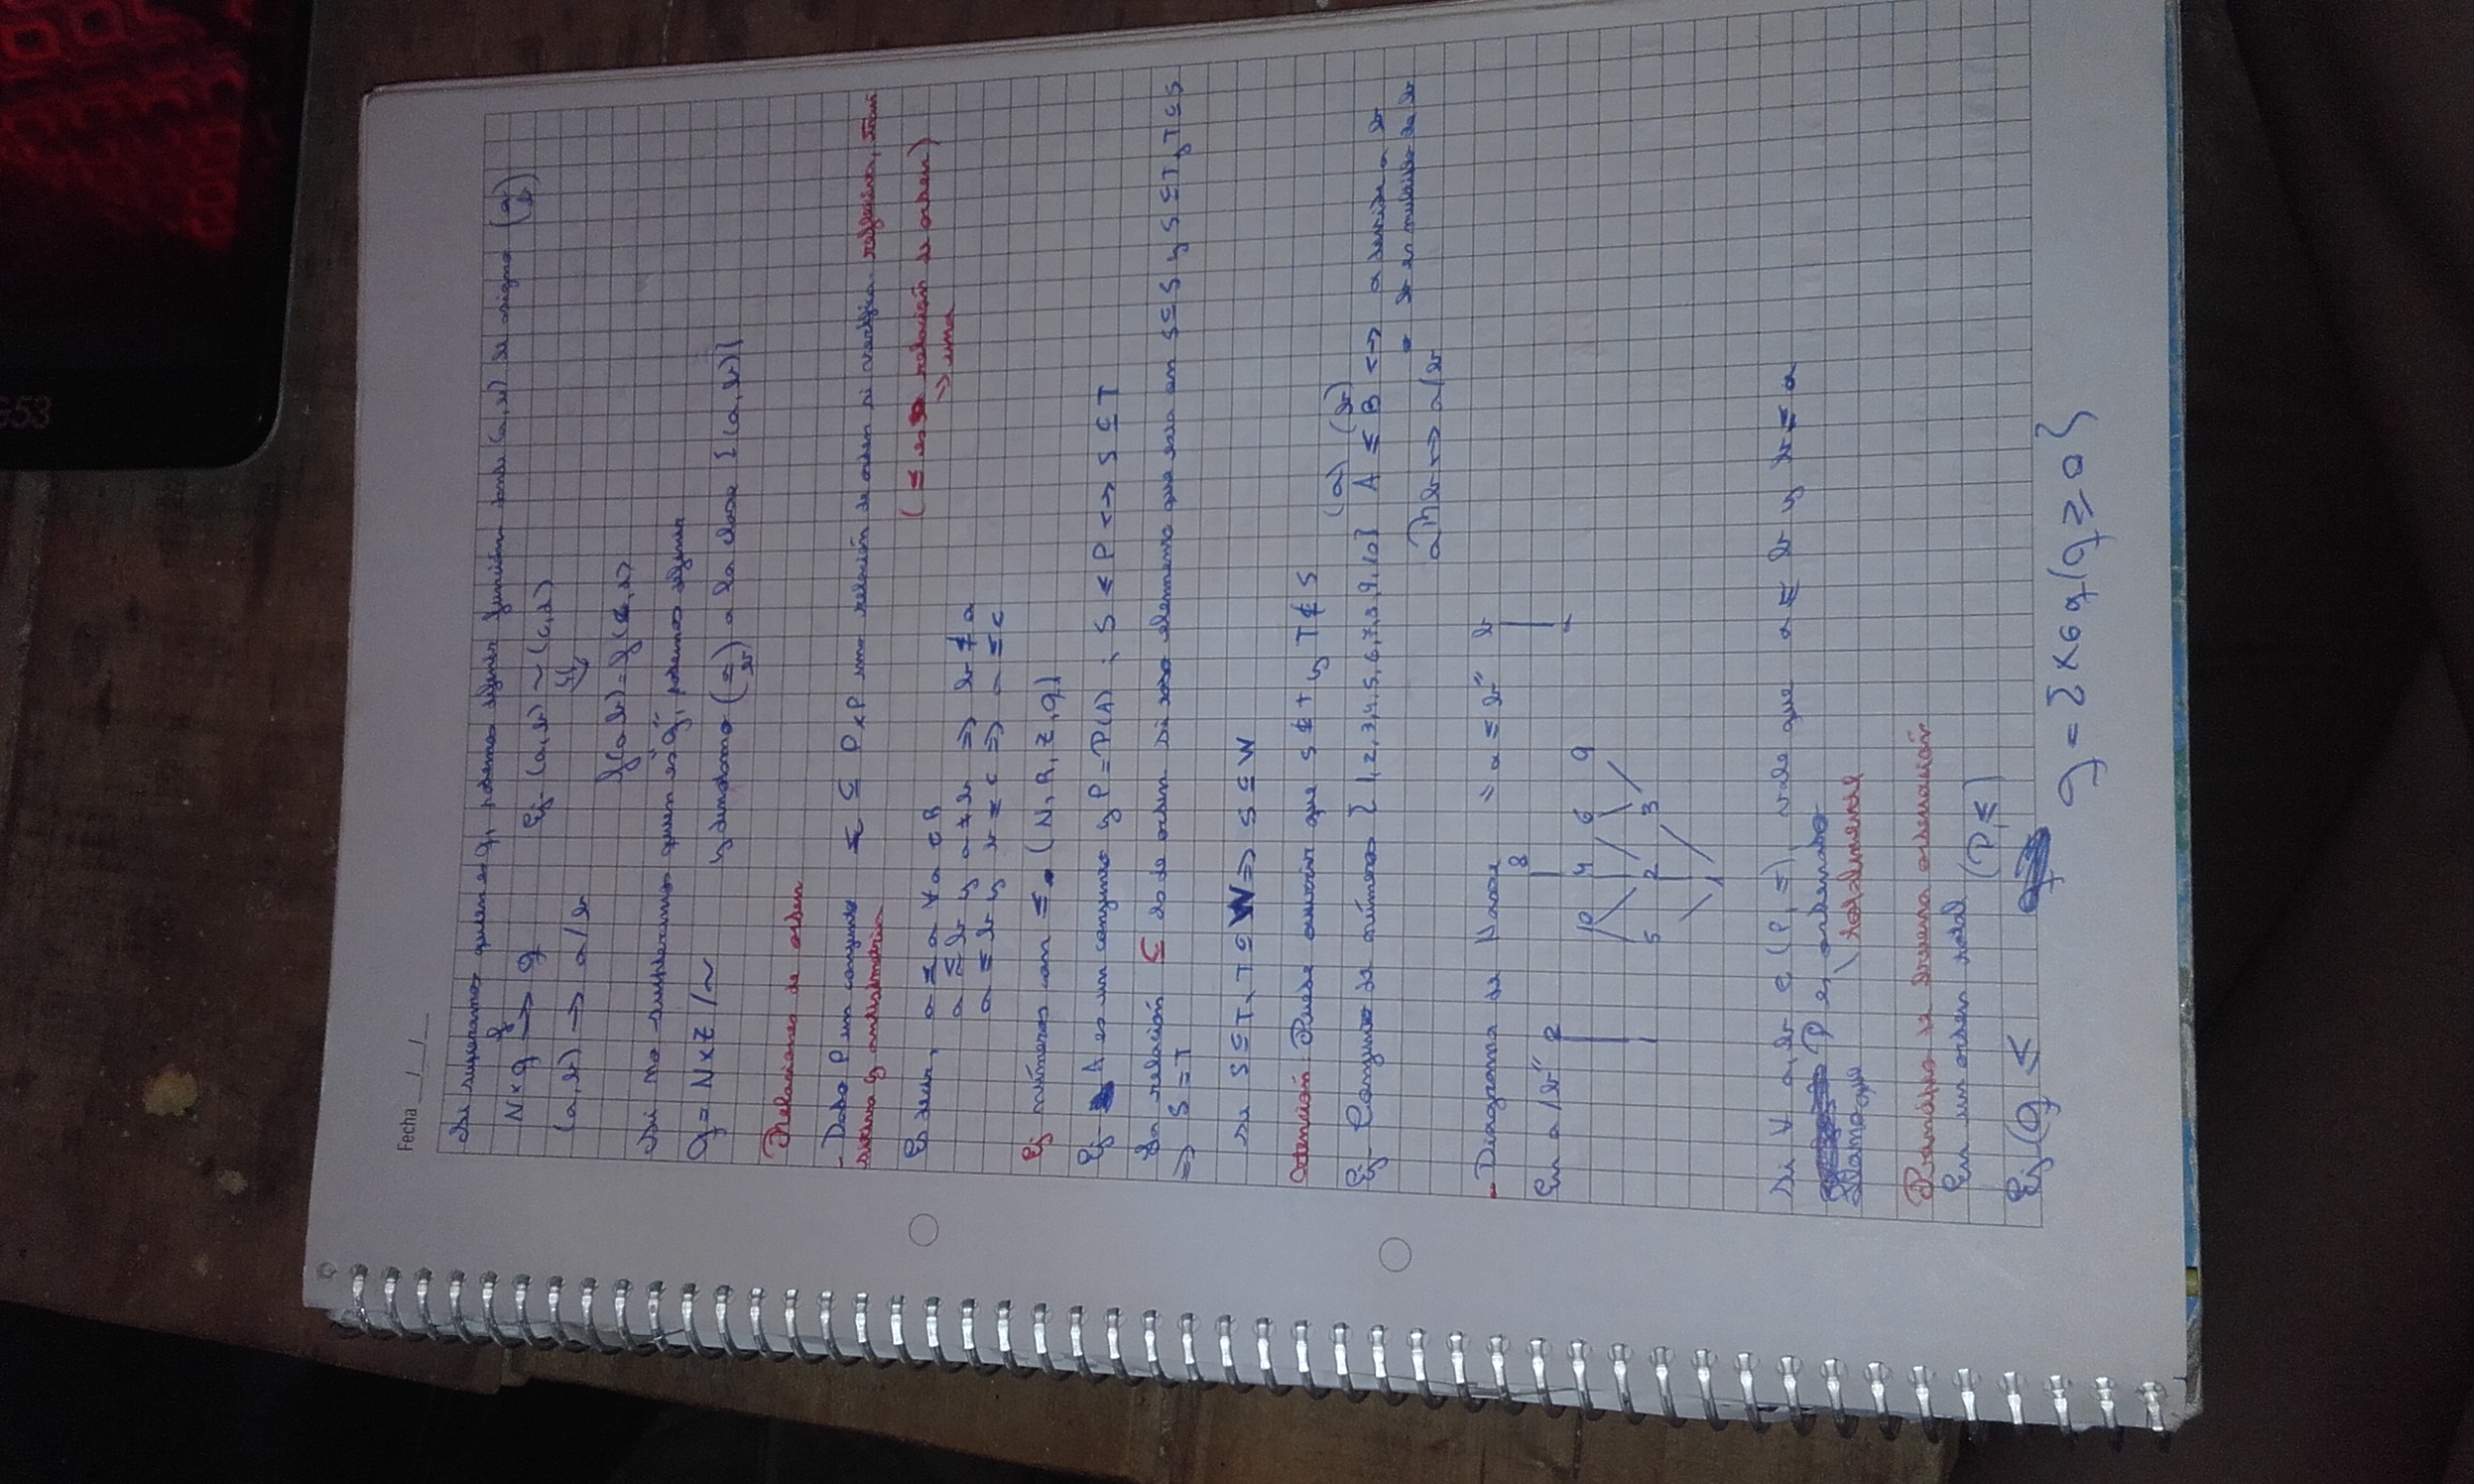 Fecha __/__/__
Si supieramos quien es q, podemos definir función donde (a,b) se asigna (a/b)
N×q f→ q Ej- (a,b) ~ (c,d)
(a,b) → a/b
f(a,b)=f(c,d)
Si no supieramos quien es "q", podemos definir
q = N×Z /~ y denotamo (a/b) a la clase {(a,b)}
Relaciones de orden
- Dado P un conjunto ≤ ⊆ P×P una relación de orden si verifica reflexiva, tran
sitiva y antisimetria
(≤ es relación de orden)
→ una
Es decir, a ≤ a ∀a ∈ R
a ≤ b y a ≠ b ⇒ b ≰ a
a ≤ b y b ≤ c ⇒ a ≤ c
Ej números con ≤ (N, R, Z, q)
Ej- A es un conjunto y P = P(A) ; S ≤ P <-> S ⊆ T
La relación ⊆ es de orden si elemento que esta en S⊆S y S⊆T y T⊆S
⇒ S = T
Si S⊆T, T⊆W ⇒ S⊆W
Atención: Puede ocurrir que S ⊈ T y T ⊈ S
(a) (b)
Ej- Conjunto de números {1,2,3,4,5,6,7,8,9,10} A ≤ B <-> a divide a b
b es multiplo de b
aRb <-> a/b
- Diagrama de Hasse "a ≤ b" b
8
En a/b" 2
10 4 6 9
1 5 2 3
1
Si ∀ a,b ∈ (P, ≤), vale que a ≤ b y b ≤ a
P es ordenado
llamo que \ totalmente
Principio de buena ordenación
En un orden total
(P, ≤)
Ej (q ≤
q = {x ∈ q / q ≥ 0}